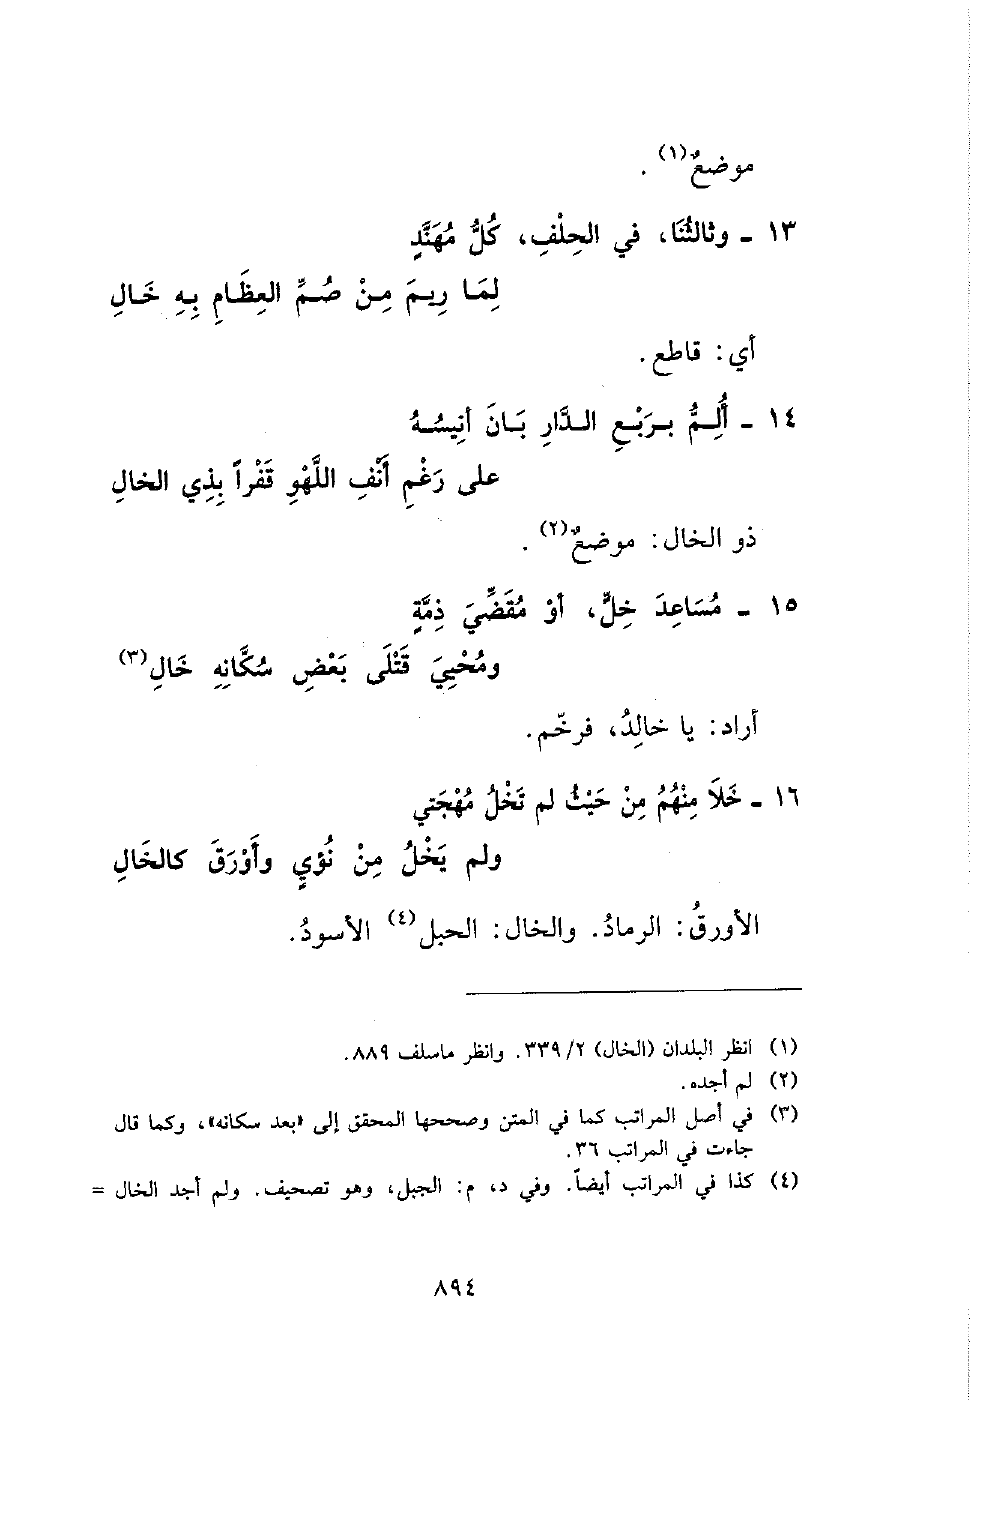 موضعٌ(١) .
١٣ ـ وثالثُنَا، في الحِلْفِ، كُلُّ مُهَنَّدٍ
لِمَا رِيمَ مِنْ صُمِّ العِظَامِ بِهِ خَالِ
أي: قاطع.
١٤ ـ أُلِمُّ بِرَبْعِ الدَّارِ بَانَ أنِيسُهُ
على رَغْمِ أَنْفِ اللَّهْوِ قَفْراً بِذِي الخالِ
ذو الخال: موضعٌ(٢) .
١٥ ـ مُسَاعِدَ خِلٍّ، أوْ مُقَضِّيَ ذِمَّةٍ
ومُحْيِيَ قَتْلَى بَعْضِ سُكَّانِهِ خَالِ(٣)
أراد: يا خالِدُ، فرخّم.
١٦ ـ خَلاَ مِنْهُمُ مِنْ حَيْثُ لم تَخْلُ مُهْجَتي
ولم يَخْلُ مِنْ نُؤيٍ وأَوْرَقَ كالخَالِ
الأورقُ: الرمادُ. والخال: الحبل(٤) الأسودُ.
(١) انظر البلدان (الخال) ٣٣٩/٢. وانظر ماسلف ٨٨٩.
(٢) لم أجده.
(٣) في أصل المراتب كما في المتن وصححها المحقق إلى «بعد سكانه»، وكما قال
جاءت في المراتب ٣٦.
(٤) كذا في المراتب أيضاً. وفي د، م: الجبل، وهو تصحيف. ولم أجد الخال =
٨٩٤